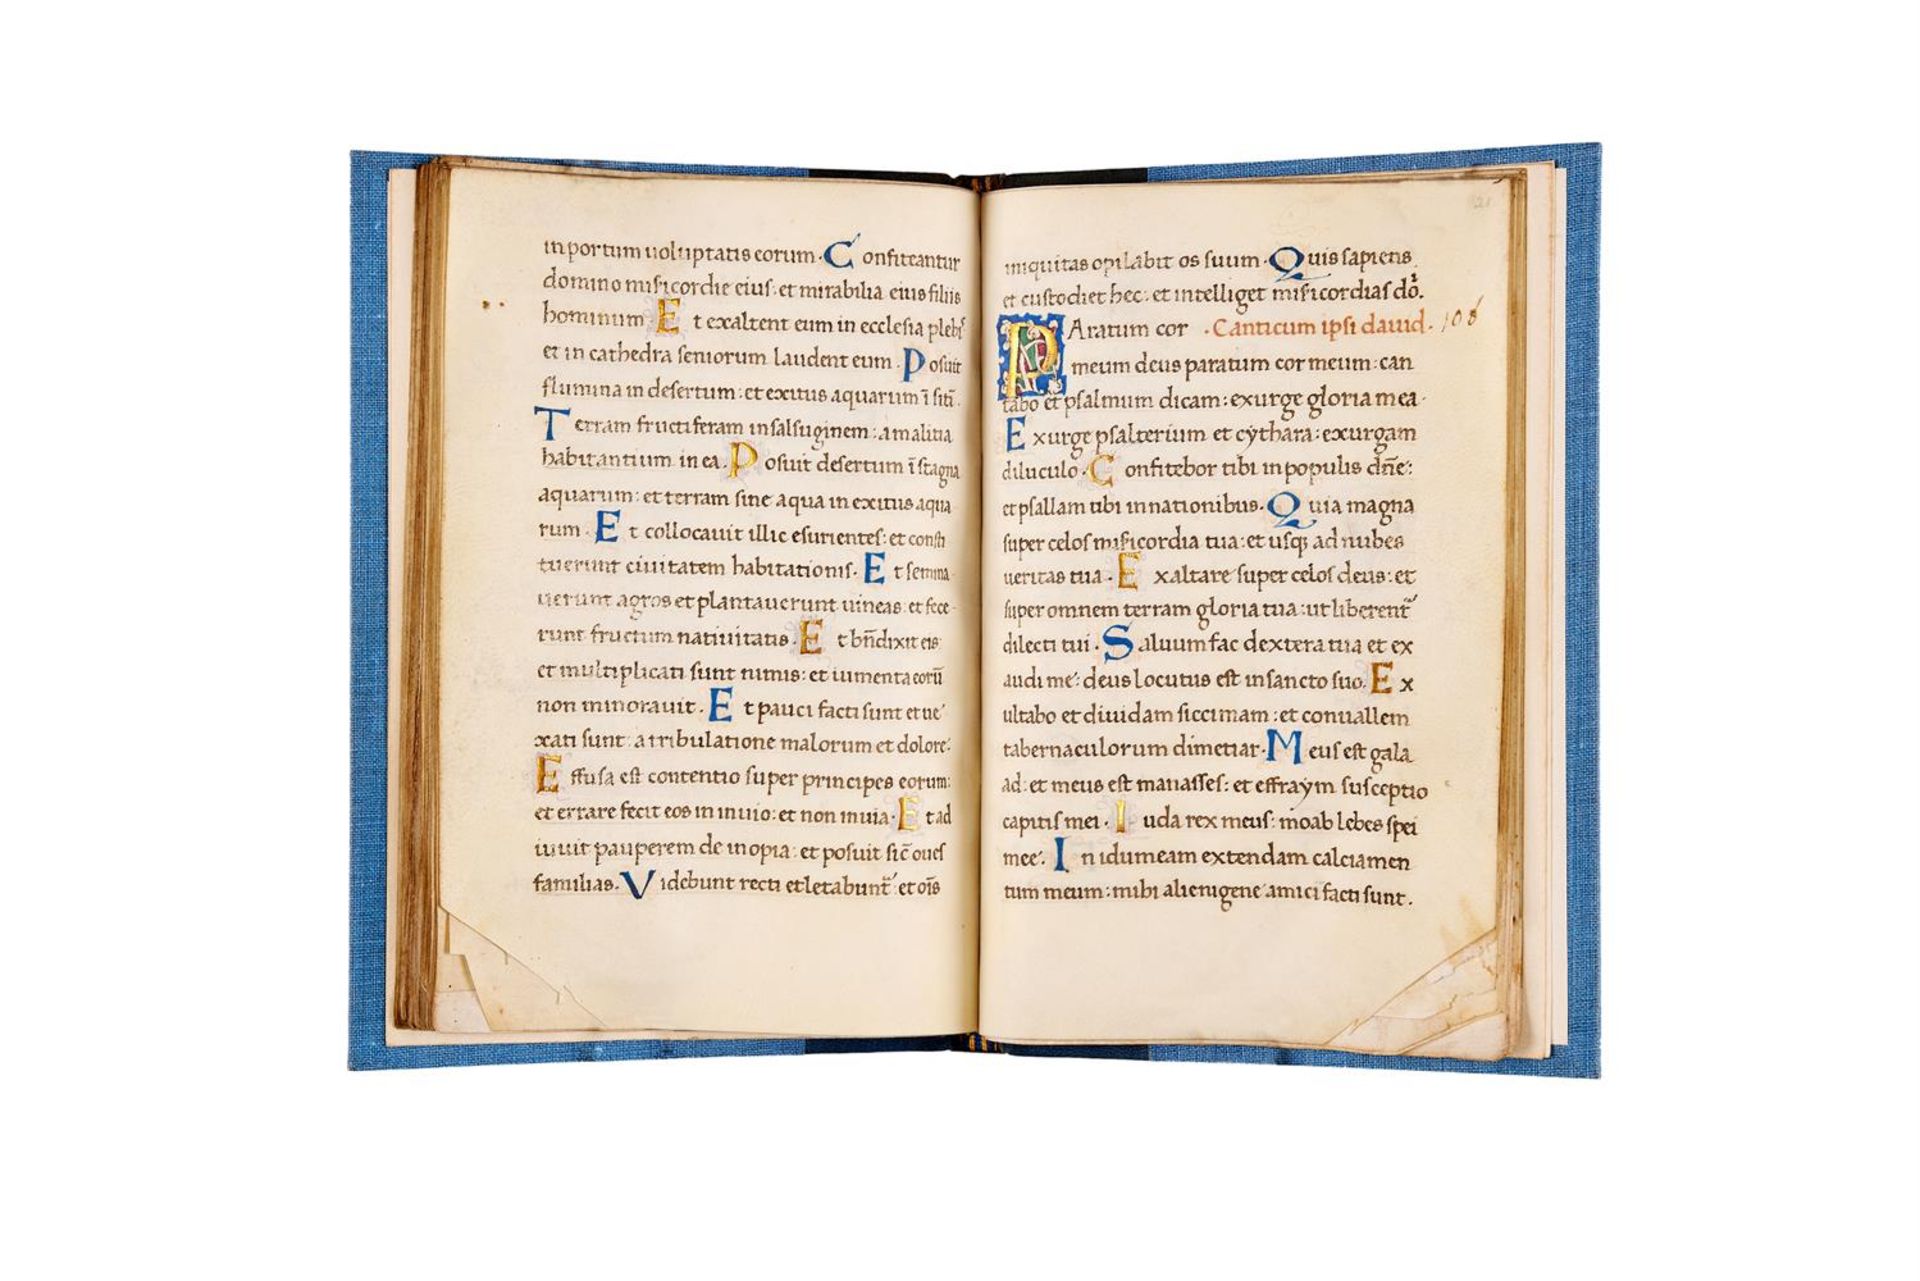 in portum uoluptatis eorum. Confiteantur
domino misericordie eius: et mirabilia eius filiis
hominum. Et exaltent eum in ecclesia plebis
et in cathedra seniorum laudent eum. Posuit
flumina in desertum: et exitus aquarum ī sitī.
Terram fructiferam in salsuginem: a malitia
habitantium in ea. Posuit desertum ī stagna
aquarum: et terram sine aqua in exitus aqua
rum. Et collocauit illic esurientes: et consti
tuerunt ciuitatem habitationis. Et semina
uerunt agros et plantauerunt uineas: et fece
runt fructum natiuitatis. Et bn̄dixit eis
et multiplicati sunt nimis: et iumenta eorū
non minorauit. Et pauci facti sunt et ue
xati sunt: a tribulatione malorum et dolore:
Effusa est contentio super principes eorum:
et errare fecit eos in inuio: et non in uia. Et ad
iuuit pauperem de inopia: et posuit sic̄ oues
familias. Videbunt recti et letabunt̄: et oīs
21
iniquitas opilabit os suum. Quis sapiens
et custodiet hec: et intelliget misericordias dōi.
PAratum cor . Canticum ipsi dauid. 106
meum deus paratum cor meum: can
tabo et psalmum dicam: exurge gloria mea.
Exurge psalterium et cythara: exurgam
diluculo. Confitebor tibi in populis dn̄e:
et psallam tibi in nationibus. Quia magna
super celos misericordia tua: et usq; ad nubes
ueritas tua. Exaltare super celos deus: et
super omnem terram gloria tua: ut liberent̄
dilecti tui. Saluum fac dextera tua et ex
audi me: deus locutus est in sancto suo. Ex
ultabo et diuidam siccimam: et conuallem
tabernaculorum dimetiar. Meus est gala
ad: et meus est manasses: et effraym susceptio
capitis mei. Iuda rex meus: moab lebes spei
mee. In idumeam extendam calciamen
tum meum: mihi alienigene amici facti sunt.